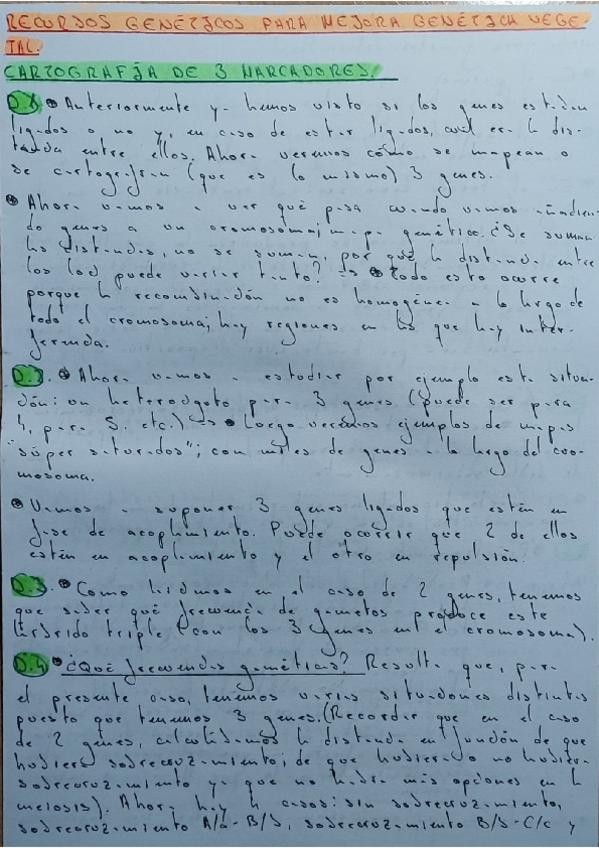 RECURSOS GENÉTICOS PARA MEJORA GENÉTICA VEGE-
TAL.
CARTOGRAFÍA DE 3 MARCADORES:
D.1 • Anteriormente ya hemos visto si los genes estaban
ligados o no y, en caso de estar ligados, cuál era la dis-
tancia entre ellos. Ahora veremos cómo se mapean o
se cartografían (que es lo mismo) 3 genes.
• Ahora vamos a ver qué pasa cuando vamos añadien-
do genes a un cromosoma/mapa genético. ¿Se suman
las distancias, no se suman, por qué la distancia entre
los loci puede variar tanto? → • Todo esto ocurre
porque la recombinación no es homogénea a lo largo de
todo el cromosoma; hay regiones en las que hay inter-
ferencia.
D.2. • Ahora vamos a estudiar por ejemplo esta situa-
ción: un heterocigoto para 3 genes (puede ser para
4, para 5, etc.) → • Luego veremos ejemplos de mapas
"súper saturados"; con miles de genes a lo largo del cro-
mosoma.
• Vamos a suponer 3 genes ligados que estén en
fase de acoplamiento. Puede ocurrir que 2 de ellos
estén en acoplamiento y el otro en repulsión.
D.3. • Como hicimos en el caso de 2 genes, tenemos
que saber qué frecuencia de gametos produce este
híbrido triple (con los 3 genes en el cromosoma).
D.4 • ¿Qué frecuencias gaméticas? Resulta que, para
el presente caso, tenemos varias situaciones distintas
puesto que tenemos 3 genes. (Recordar que en el caso
de 2 genes, calculábamos la distancia en función de que
hubiera sobrecruzamiento; de que hubiera o no hubiera
sobrecruzamiento ya que no había más opciones en la
meiosis). Ahora hay 4 casos: sin sobrecruzamiento,
sobrecruzamiento A/a-B/b, sobrecruzamiento B/b-C/c y